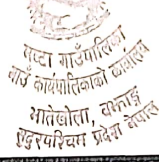 गाउँपालिका
गाउँ कार्यपालिकाको कार्यालय
भातेखोला, बझाङ
सुदूरपश्चिम प्रदेश नेपाल